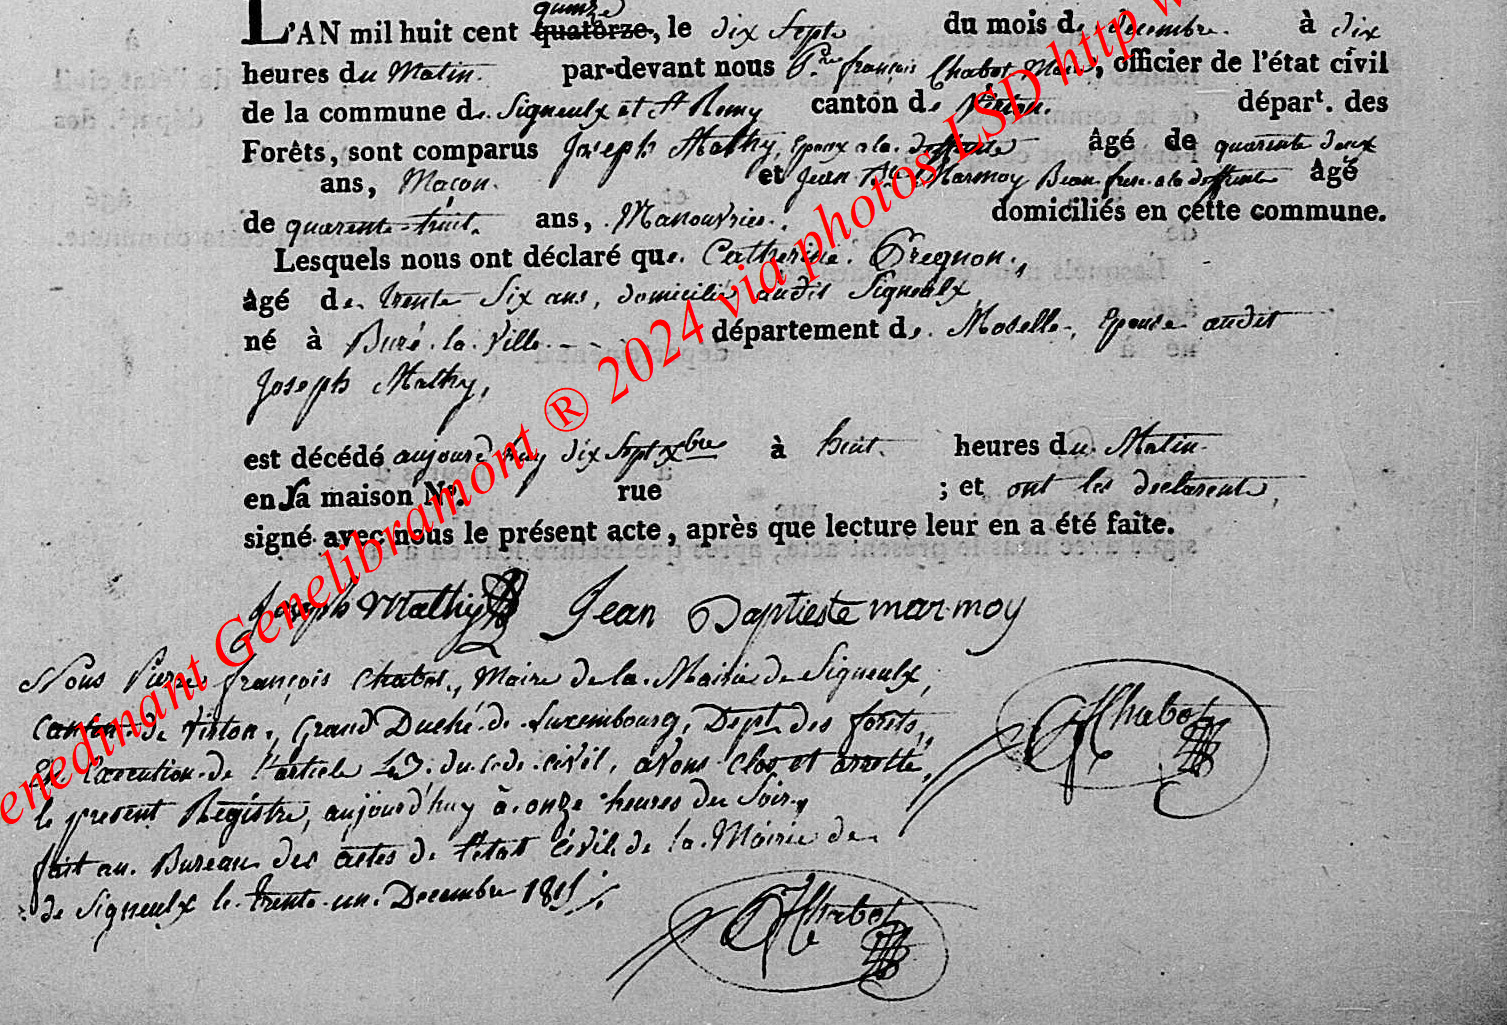 quinze
L'AN mil huit cent quatorze, le dix Sept du mois de decembre. à dix
heures du Matin. par-devant nous P.re françois Chabot Maire, officier de l'état civil
de la commune de Signeulx et St Remy canton de Virton. départ. des
Forêts, sont comparus Joseph Mathy, Epoux a la deffunte âgé de quarente deux
ans, Maçon. et Jean Bte Marmoy Beau frere a la deffunte âgé
de quarente-huit. ans, Manouvrier. domiciliés en cette commune.
Lesquels nous ont déclaré que Catherine Gregnon,
âgé de trente Six ans, domicilié audit Signeulx
né à Buré-la-Ville département de Moselle, Epouse audit
Joseph Mathy,
est décédé aujourd'huy dix Sept Xbre à huit heures du Matin
en sa maison No. rue ; et ont les declarents,
signé avec nous le présent acte, après que lecture leur en a été faite.
Joseph Mathy Jean Baptieste marmoy
Nous Pierre françois Chabot, Maire de la Mairie de Signeulx,
Canton de Virton, Grand Duché de Luxembourg, Dept des forêts,
En Execution de l'article 43 du Code civil, avons clos et arretté,
le present Registre, aujourd'huy à onze heures du Soir,
fait au Bureau des actes de l'état Civil de la Mairie de
de Signeulx le trente-un Decembre 1815
Chabot
Chabot
enedinant Genelibramont ® 2024 via photos LSD http w